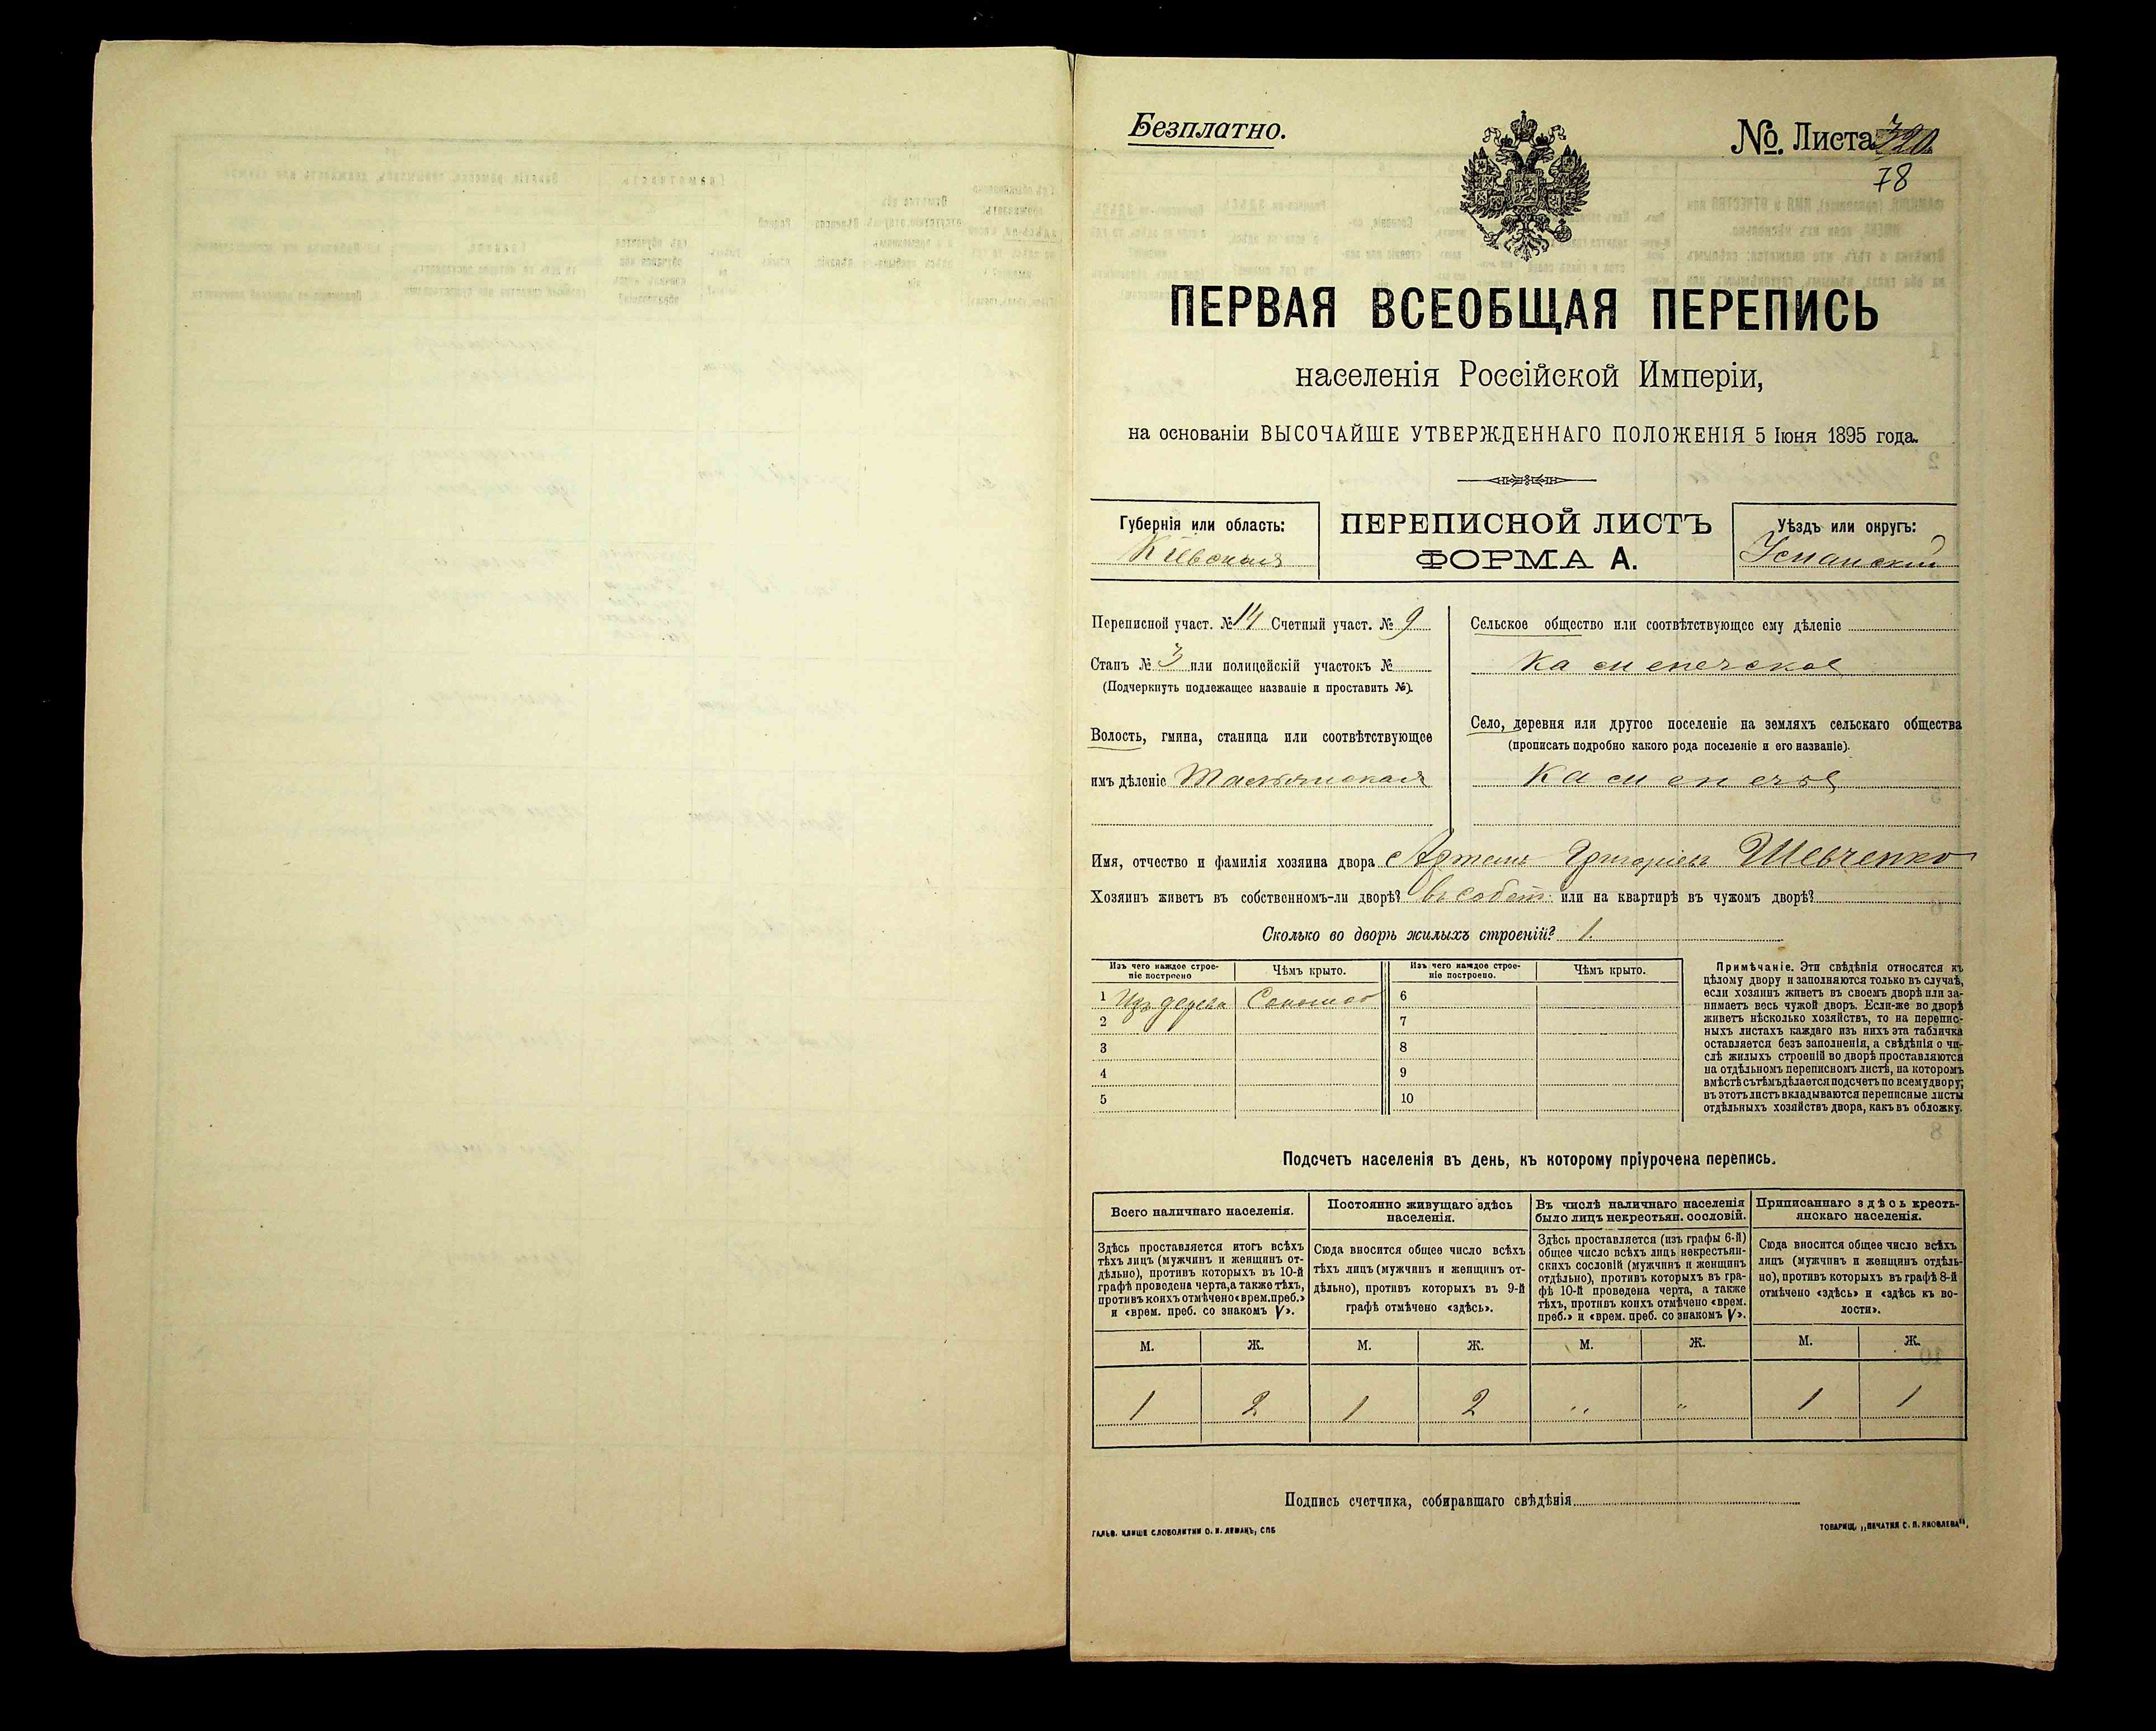 Безплатно.
№ Листа
78
ПЕРВАЯ ВСЕОБЩАЯ ПЕРЕПИСЬ
населенія Россійской Имперіи,
на основаніи ВЫСОЧАЙШЕ УТВЕРЖДЕННАГО ПОЛОЖЕНІЯ 5 Іюня 1895 года.
Губернія или область:
Кіевская
ПЕРЕПИСНОЙ ЛИСТЪ
ФОРМА А.
Уѣздъ или округъ:
Уманскій
Переписной участ. № 14 Счетный участ. № 9
Станъ № 3 или полицейскій участокъ №
(Подчеркнуть подлежащее названіе и проставить №).
Волость, гмина, станица или соотвѣтствующее
имъ дѣленіе Тальянская
Сельское общество или соотвѣтствующее ему дѣленіе
Каменечское
Село, деревня или другое поселеніе на земляхъ сельскаго общества
(прописать подробно какого рода поселеніе и его названіе).
Каменечье
Имя, отчество и фамилія хозяина двора Артемъ Григорьевъ Шевченко
Хозяинъ живетъ въ собственномъ-ли дворѣ? въ собст. или на квартирѣ въ чужомъ дворѣ?
Сколько во дворѣ жилыхъ строеній? 1.
Изъ чего каждое строе-
ніе построено
Чѣмъ крыто.
Изъ чего каждое строе-
ніе построено.
Чѣмъ крыто.
1 Изъ дерева Соломою
2
3
4
5
6
7
8
9
10
Примѣчаніе. Эти свѣдѣнія относятся къ
цѣлому двору и заполняются только въ случаѣ,
если хозяинъ живетъ въ своемъ дворѣ или за-
нимаетъ весь чужой дворъ. Если-же во дворѣ
живетъ нѣсколько хозяйствъ, то на перепис-
ныхъ листахъ каждаго изъ нихъ эта табличка
оставляется безъ заполненія, а свѣдѣнія о чи-
слѣ жилыхъ строеній во дворѣ проставляются
на отдѣльномъ переписномъ листѣ, на которомъ
вмѣстѣ съ тѣмъ дѣлается подсчетъ по всему двору;
въ этотъ листъ вкладываются переписные листы
отдѣльныхъ хозяйствъ двора, какъ въ обложку.
Подсчетъ населенія въ день, къ которому пріурочена перепись.
Всего наличнаго населенія.
Здѣсь проставляется итогъ всѣхъ
тѣхъ лицъ (мужчинъ и женщинъ от-
дѣльно), противъ которыхъ въ 10-й
графѣ проведена черта, а также тѣхъ,
противъ коихъ отмѣчено «врем. преб.»
и «врем. преб. со знакомъ V».
Постоянно живущаго здѣсь
населенія.
Сюда вносится общее число всѣхъ
тѣхъ лицъ (мужчинъ и женщинъ от-
дѣльно), противъ которыхъ въ 9-й
графѣ отмѣчено «здѣсь».
Въ числѣ наличнаго населенія
было лицъ некрестьян. сословій.
Здѣсь проставляется (изъ графы 6-й)
общее число всѣхъ лицъ некрестьян-
скихъ сословій (мужчинъ и женщинъ
отдѣльно), противъ которыхъ въ гра-
фѣ 10-й проведена черта, а также
тѣхъ, противъ коихъ отмѣчено «врем.
преб.» и «врем. преб. со знакомъ V».
Приписаннаго здѣсь кресть-
янскаго населенія.
Сюда вносится общее число всѣхъ
лицъ (мужчинъ и женщинъ отдѣль-
но), противъ которыхъ въ графѣ 8-й
отмѣчено «здѣсь» и «здѣсь къ во-
лости».
М. Ж. М. Ж. М. Ж. М. Ж.
1 2 1 2 " " 1 1
Подпись счетчика, собиравшаго свѣдѣнія
ГАЛЬВ. КЛИШЕ СЛОВОЛИТНИ О. И. ЛЕМАНЪ, СПБ
ТОВАРИЩ. „ПЕЧАТНЯ С. П. ЯКОВЛЕВА".